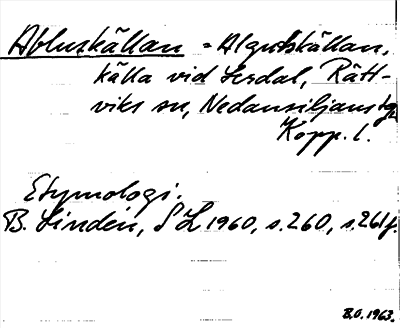 Abluskällan = Algutskällan,
källa vid Lerdal, Rätt-
viks sn, Nedansiljans tg,
Kopp. l.
Etymologi.
B. Lindén, SL 1960, s. 260, s. 261 f.
B.O. 1963.